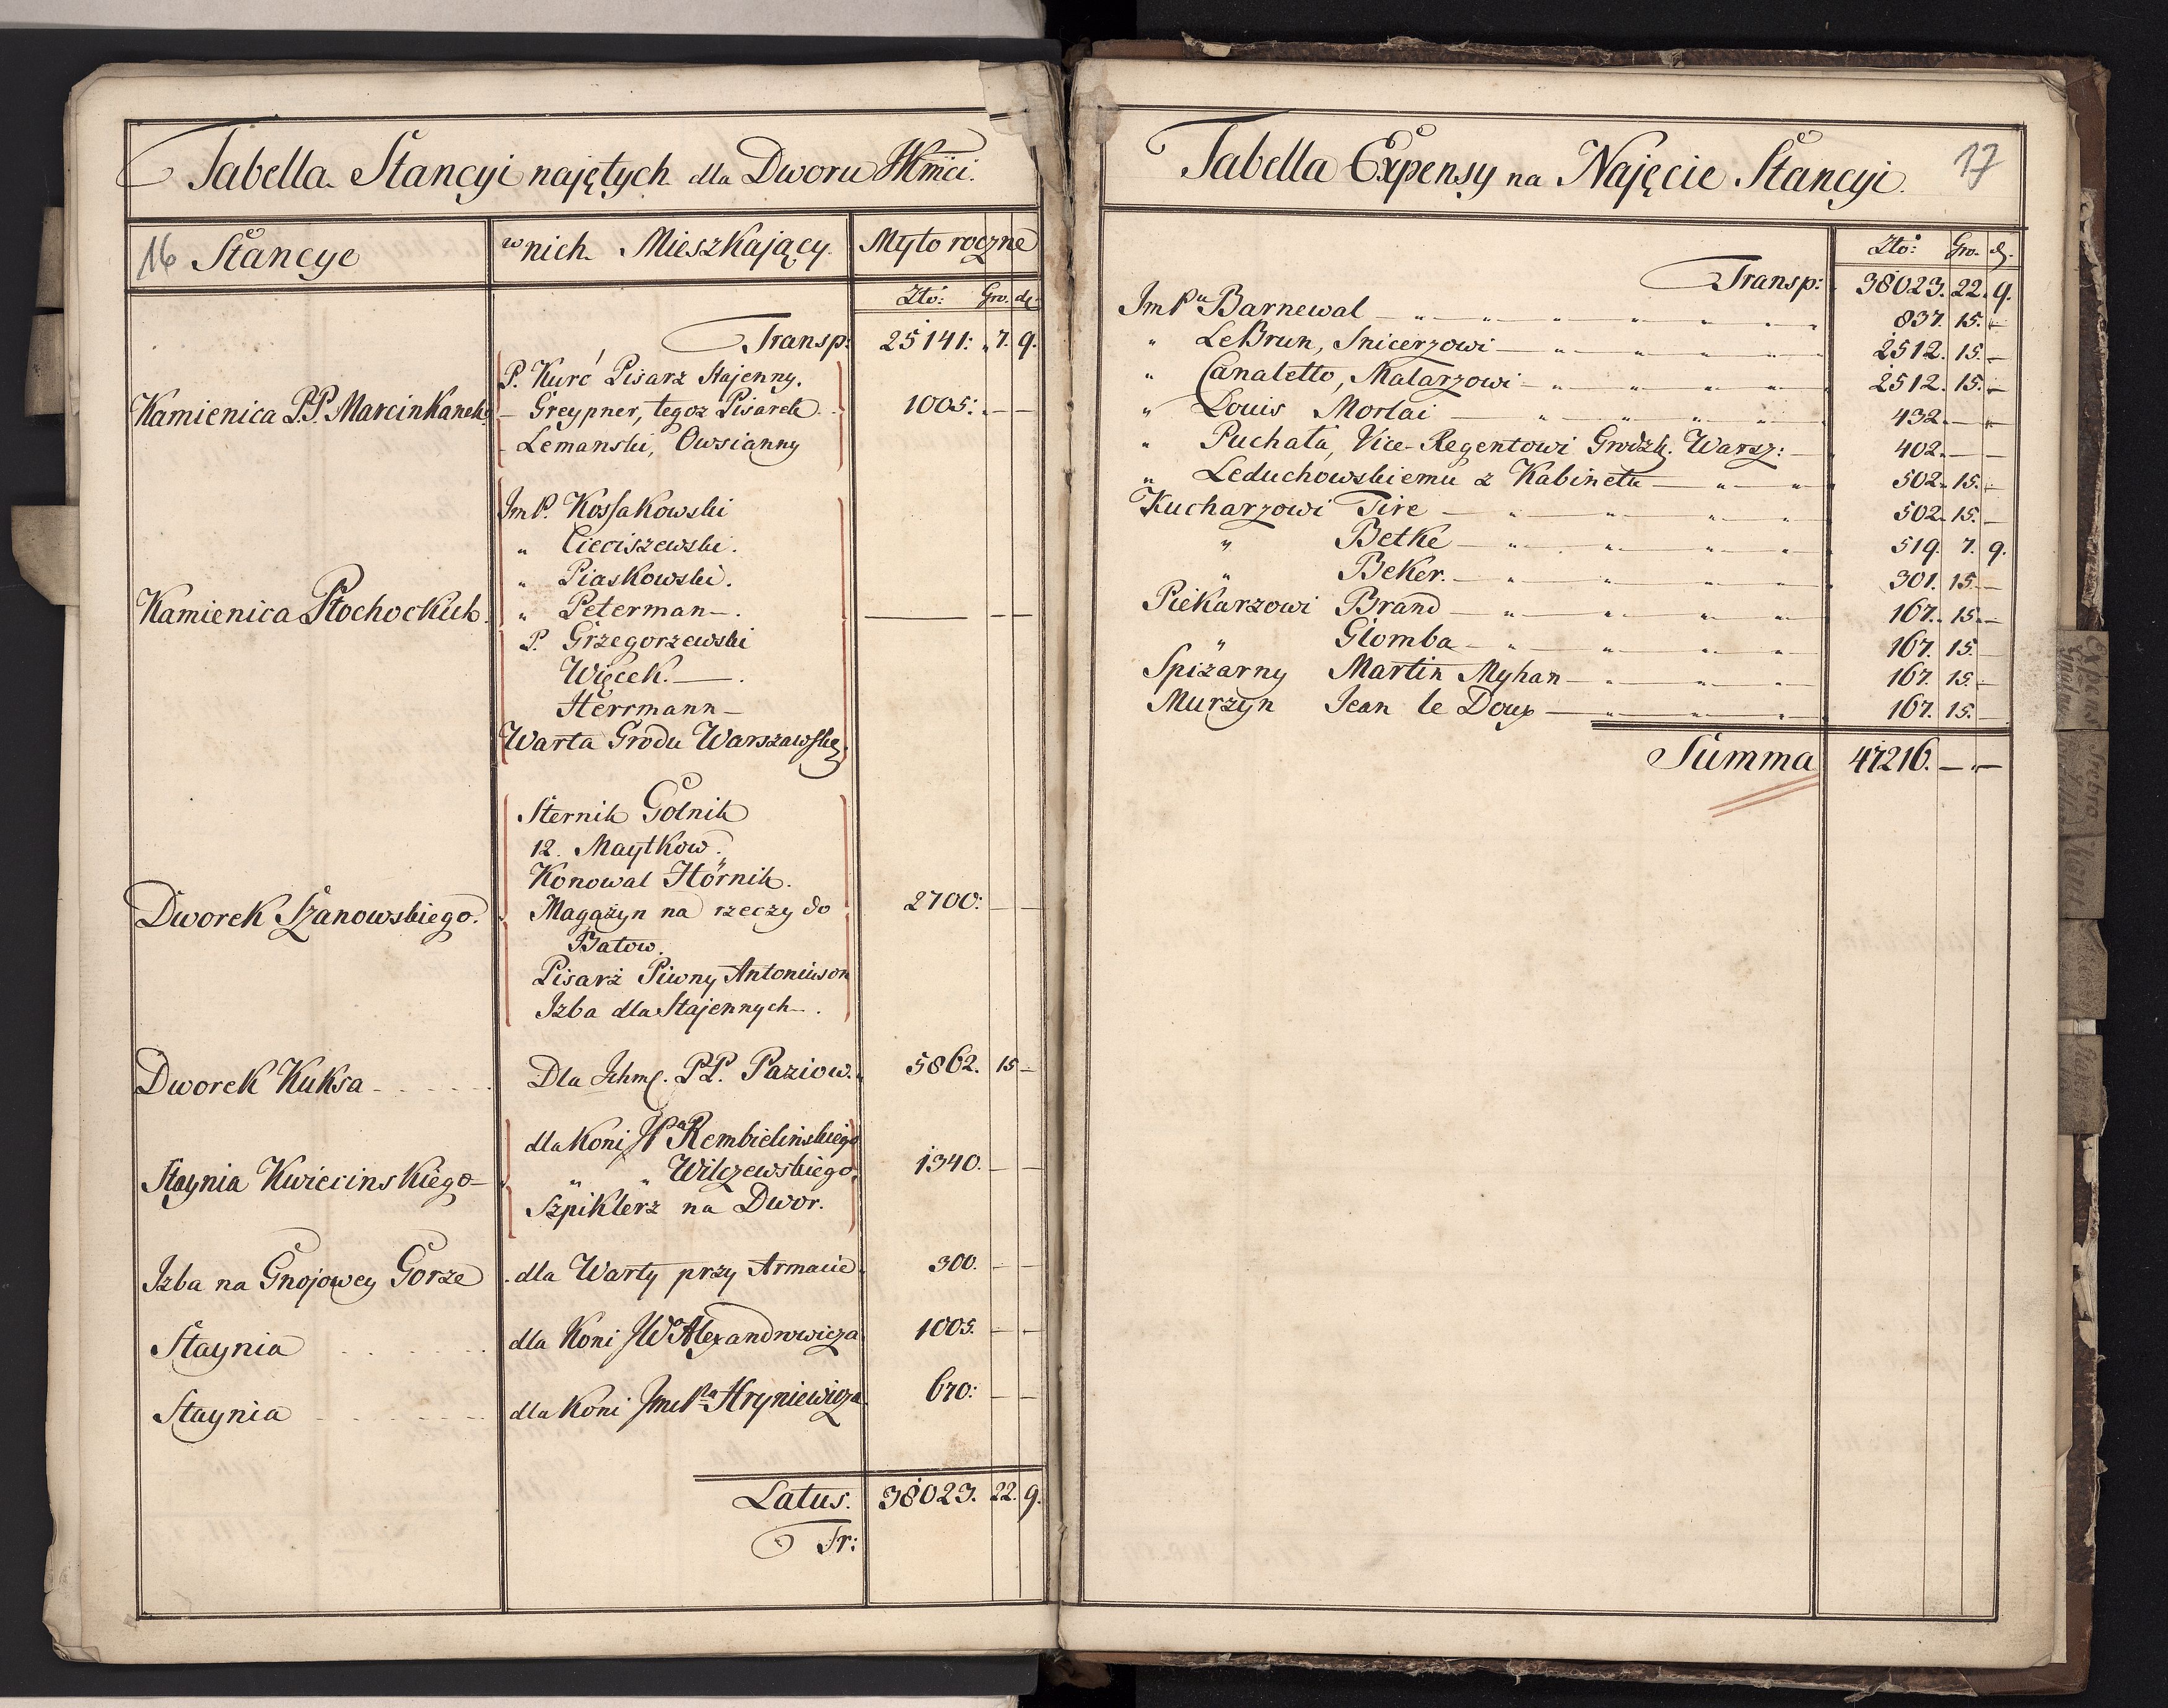 Tabella Stancyi najętych dla Dworu JKmci.
16 Stancye
w nich Mieszkający.
Myto roczne
Zło: Gro. d.
Transp: 25141: „ 7. 9.
P. Kurć Pisarz Stajenny.
Kamienica P.P. Marcinkanek. – Greypner, tegoz Pisarek. 1005: — —
- Lemanski, Owsianny
ImP. Kossakowski
„ Cieciszewski.
„ Piaskowski.
Kamienica Płochockich. „ Peterman —. — — —
P. Grzegorzewski
Więcek. —.
Herrmann —
Warta Grodu Warszawskie.
Sternik Golnik
12. Maytkow.
Konował Hörnik.
Dworek Szanowskiego. Magazyn na rzeczy do 2700: — —
Batow.
Pisarz Piwny Antoniuson
Izba dla Stajennych —.
Dworek Kuksa - Dla Ichmć. PP. Paziow. 5862. 15 —
dla Koni JPa Rembielinskiego
Staynia Kwiecinskiego — „ „ Wilczewskiego. 1340. — —
Szpiklerz na Dwor.
Izba na Gnojowey Gorze . dla Warty przy Armacie 300. — —
Staynia dla Koni JW Alexandrowicza 1005. — —
Staynia dla Koni JmcPna Hryniewicza 670: — —
Latus. 38023. 22. 9.
Tr:
Tabella Expensy na Najęcie Stancyi. 17
Zło: Gro. d.
Transp: 38023. 22. 9.
ImPu Barnewal — 837. 15. —
„ LeBrun, Snicerzowi — 2512. 15. —
„ Canaletto, Malarzowi — 2512. 15. —
„ Louis Morlai — 432. — „
„ Puchała, Vice-Regentowi Grodzk. Warsz: — 402. — —
„ Leduchowskiemu z Kabinetu — 502. 15. —
Kucharzowi Tire — 502. 15. —
„ Betke — 519. 7. 9.
„ Beker. — 301. 15. —
Piekarzowi Brand — 167. 15. —
„ Glomba — 167. 15. —
Spiżarny Martin Myhan — 167. 15. —
Murzyn Jean le Doux — 167. 15. —
Summa 47216. — „ —